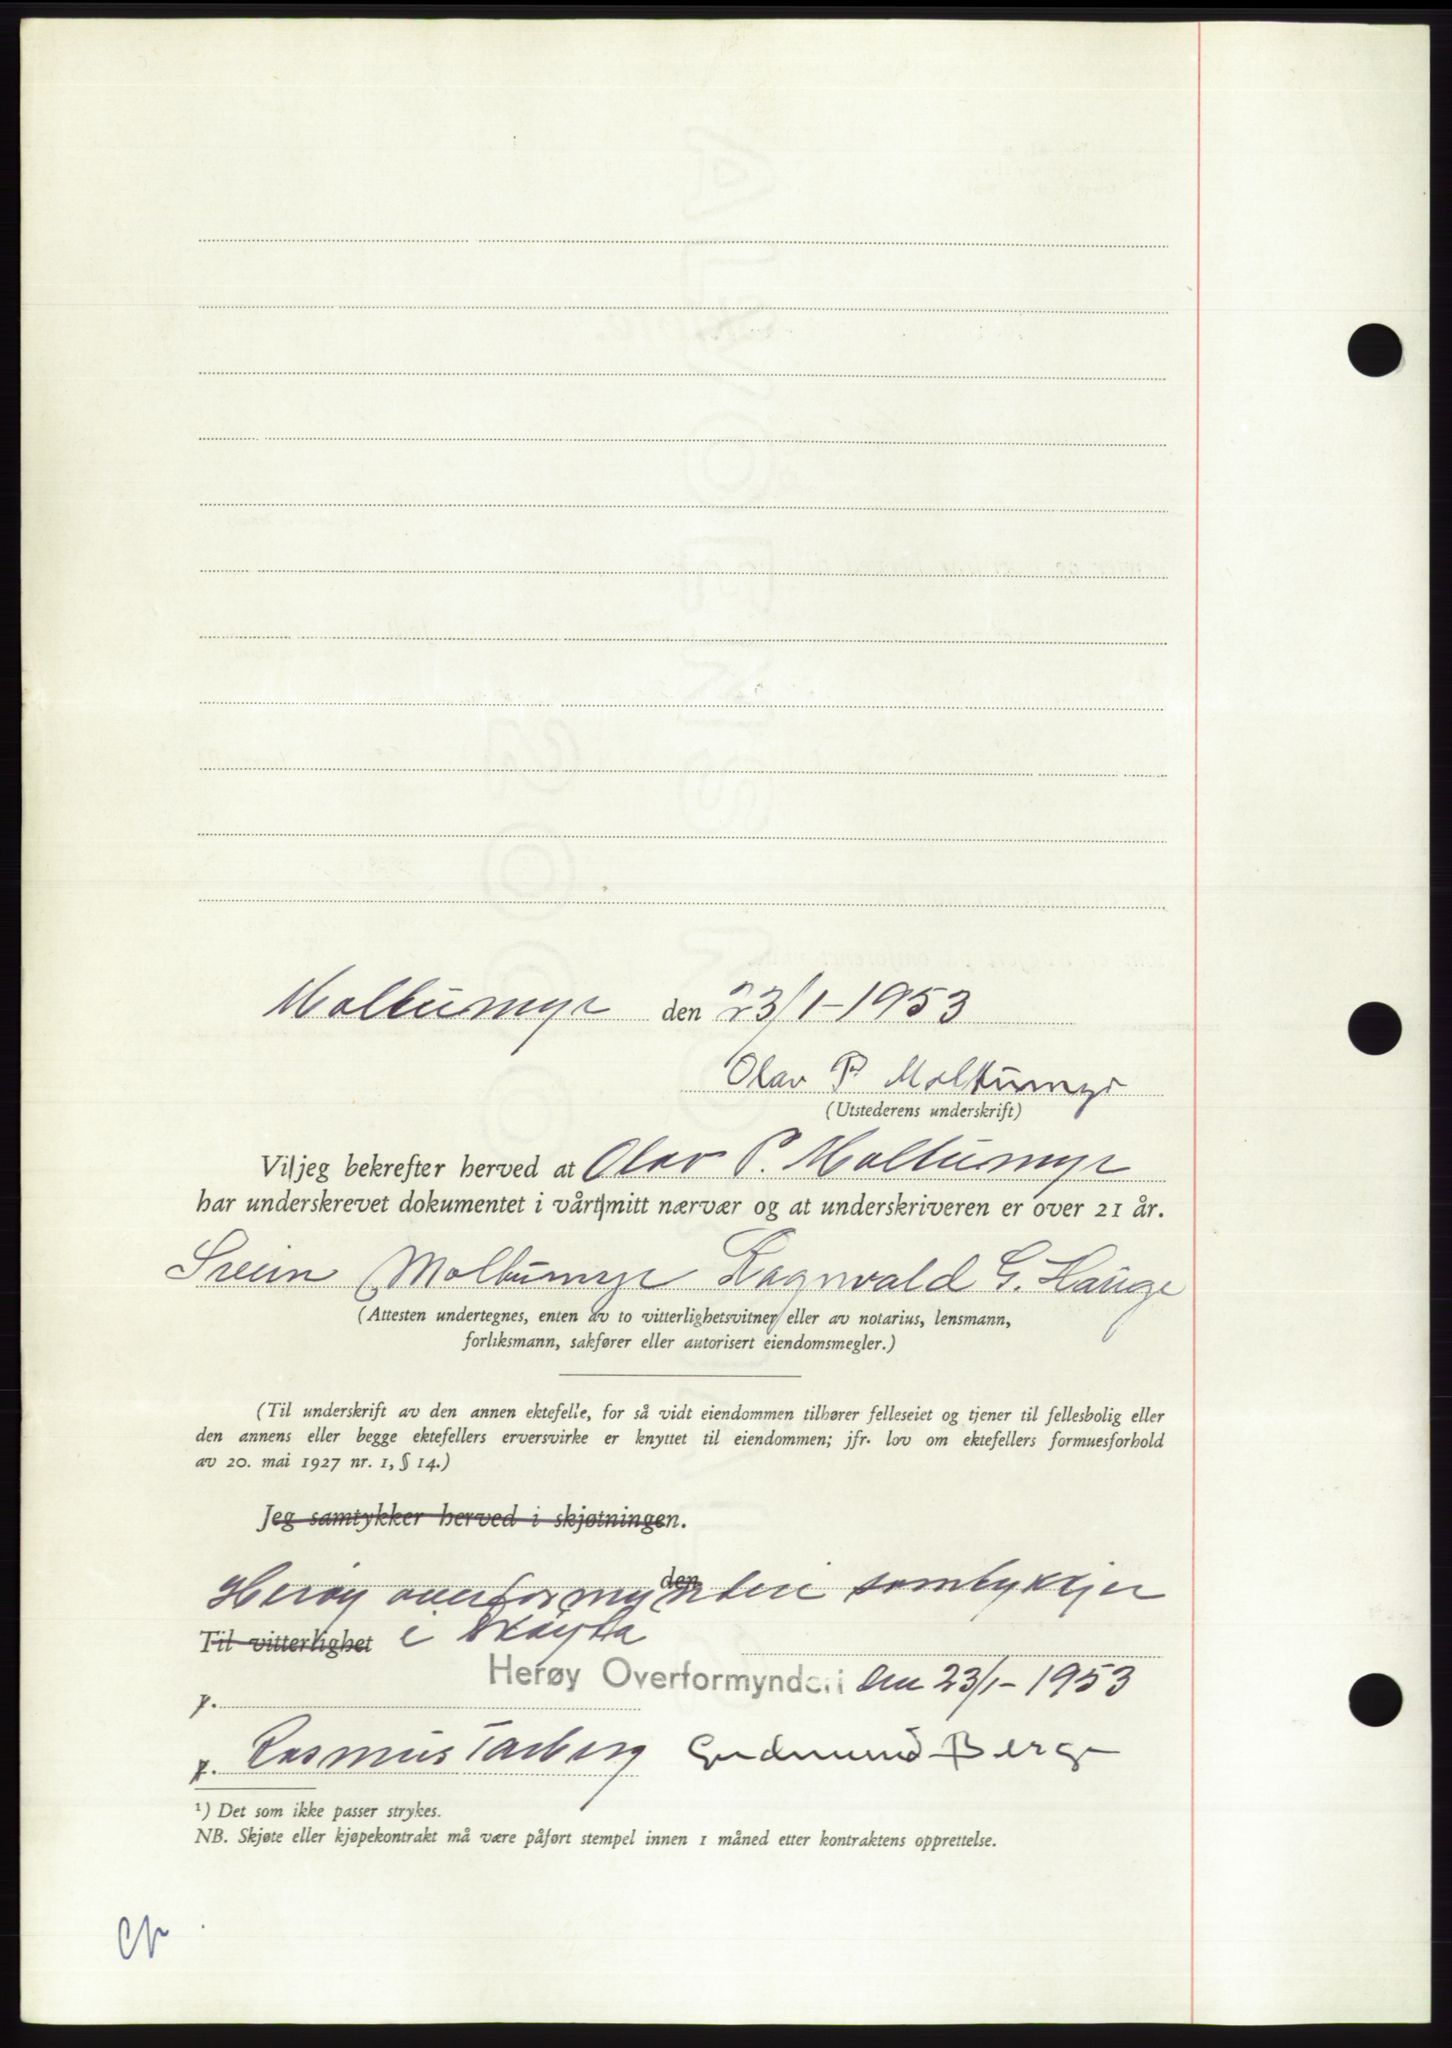 Moltumyr den 23/1-1953
Olav P Moltumyr
(Utstederens underskrift)
Vi/jeg bekrefter herved at Olav P. Moltumyr
har underskrevet dokumentet i vårt/mitt nærvær og at underskriveren er over 21 år.
Svein Moltumyr Ragnvald G. Hauge
(Attesten undertegnes, enten av to vitterlighetsvitner eller av notarius, lensmann,
forliksmann, sakfører eller autorisert eiendomsmegler.)
(Til underskrift av den annen ektefelle, for så vidt eiendommen tilhører felleseiet og tjener til fellesbolig eller
den annens eller begge ektefellers erversvirke er knyttet til eiendommen; jfr. lov om ektefellers formuesforhold
av 20. mai 1927 nr. 1, § 14.)
Jeg samtykker herved i skjøtningen.
den
Herøy overformynderi samtykkjer
Til vitterlighet i skøyta
Herøy Overformynderi den 23/1-1953
Rasmus Tarberg Gudmund Berge
¹) Det som ikke passer strykes.
NB. Skjøte eller kjøpekontrakt må være påført stempel innen 1 måned etter kontraktens opprettelse.